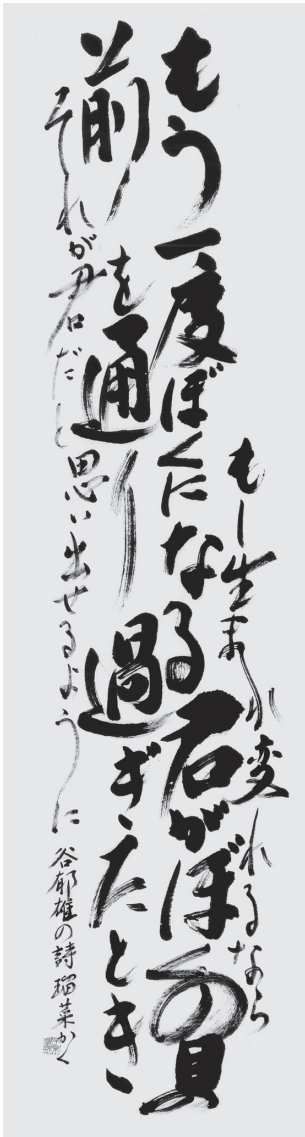 もし生まれ変れるなら
もう一度ぼくになる石がぼくの目
の前を通り過ぎたとき
それが君だと思い出せるように
谷郁雄の詩 瑠菜かく